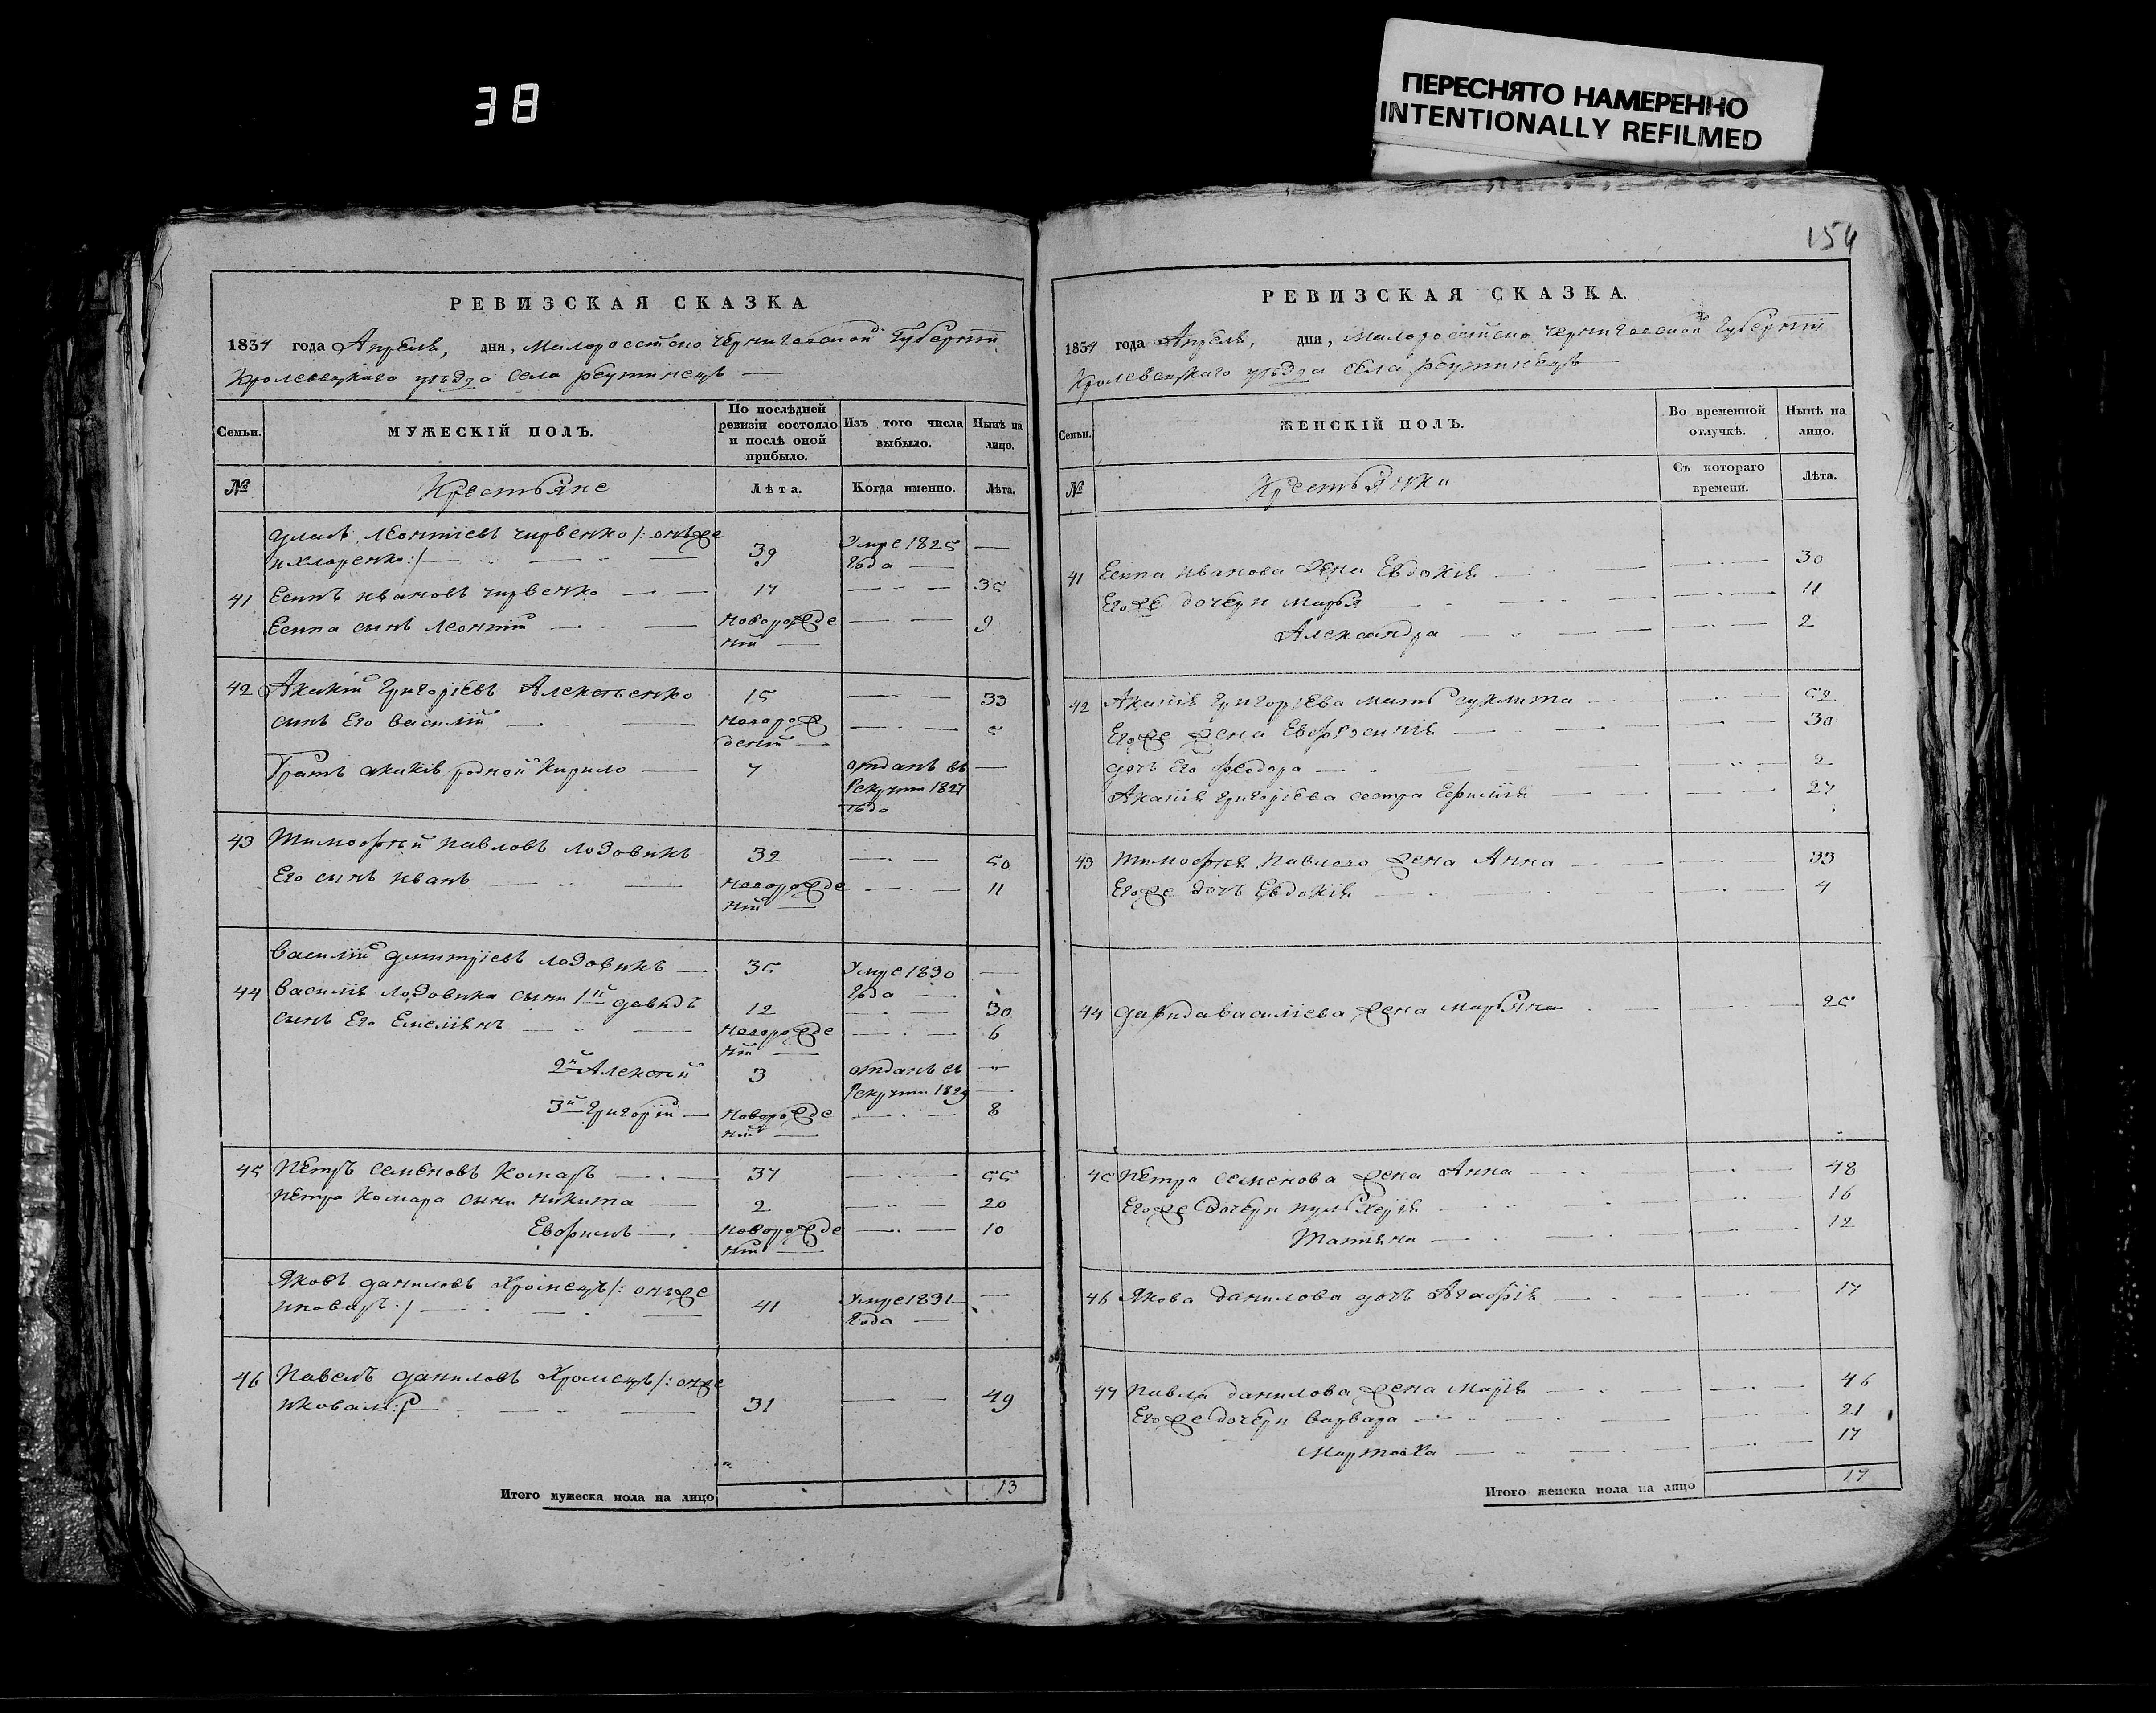 38
ПЕРЕСНЯТО НАМЕРЕННО
INTENTIONALLY REFILMED
154
РЕВИЗСКАЯ СКАЗКА.
1834 года Апреля, дня, Малоросійско Черниговской Губерніи
Кролевецкаго уѣзда села Реутинецъ
Семьи. МУЖЕСКІЙ ПОЛЪ. По послѣдней ревизіи состояло и послѣ оной прибыло. Изъ того числа выбыло. Нынѣ на лицо.
№ Крестьяне Лѣта. Когда именно. Лѣта.
Леонтіевъ Чирвенко /: онъже 39 Умре 1825 года —
41 Есипъ Ивановъ Чирвенко 17 — 35
Есипа сынъ Леонтій новорожденій — 9
42 Акакій Григоріевъ Алексѣенко 15 — 33
сынъ Его Василій новорожденій — 5
Братъ Акакія родной Кирило 7 отданъ въ Рекруты 1827 года —
43 Тимофѣй Павловъ Лозовикъ 32 — 50
Его сынъ Иванъ новорожденій — 11
Василій Дмитріевъ Лозовикъ 35 Умре 1830 года —
44 Василія Лозовика сыны 1й Давидъ 12 — 30
сынъ Его Емеліянъ новорожденій — 6
2й Алексѣй 3 отданъ въ Рекруты 1829 —
3й Григорій новорожденій — 8
45 Петръ Семеновъ Комаръ 37 — 55
Петра Комара сыны Никита 2 — 20
Евфимъ новорожденій — 10
Яковъ Даниловъ Хромецъ /: онъже
иковаръ :/ 41 Умре 1831 года —
46 Павелъ Даниловъ Хромецъ /: онже
иковаль :/ 31 — 49
Итого мужеска пола на лицо 13
РЕВИЗСКАЯ СКАЗКА.
1834 года Апреля, дня, Малоросійско Черниговской Губерніи
Кролевецкаго уѣзда села Реутинецъ
Семьи. ЖЕНСКІЙ ПОЛЪ. Во временной отлучкѣ. Нынѣ на лицо.
№ Крестьянки Съ котораго времени. Лѣта.
41 Есипа Иванова жена Евдокія — 30
Егоже дочери Марья — 11
Александра — 2
42 Акакія Григоріева мать Гуклита — 52
Егоже жена Евфросинія — 30
дочь Его Феодора — 2
Акакія Григоріева сестра — 27
43 Тимофѣя Павлова жена Анна — 33
Егоже дочь Евдокія — 4
44 Давида Василіева жена Марьяна — 25
45 Петра Семенова жена Анна — 48
Егоже дочери Пульхерія — 16
Татіяна — 12
46 Якова Данилова дочь Агафія — 17
47 Павла Данилова жена Марія — 46
Егоже дочери Варвара — 21
— 17
Итого женска пола на лицо 17